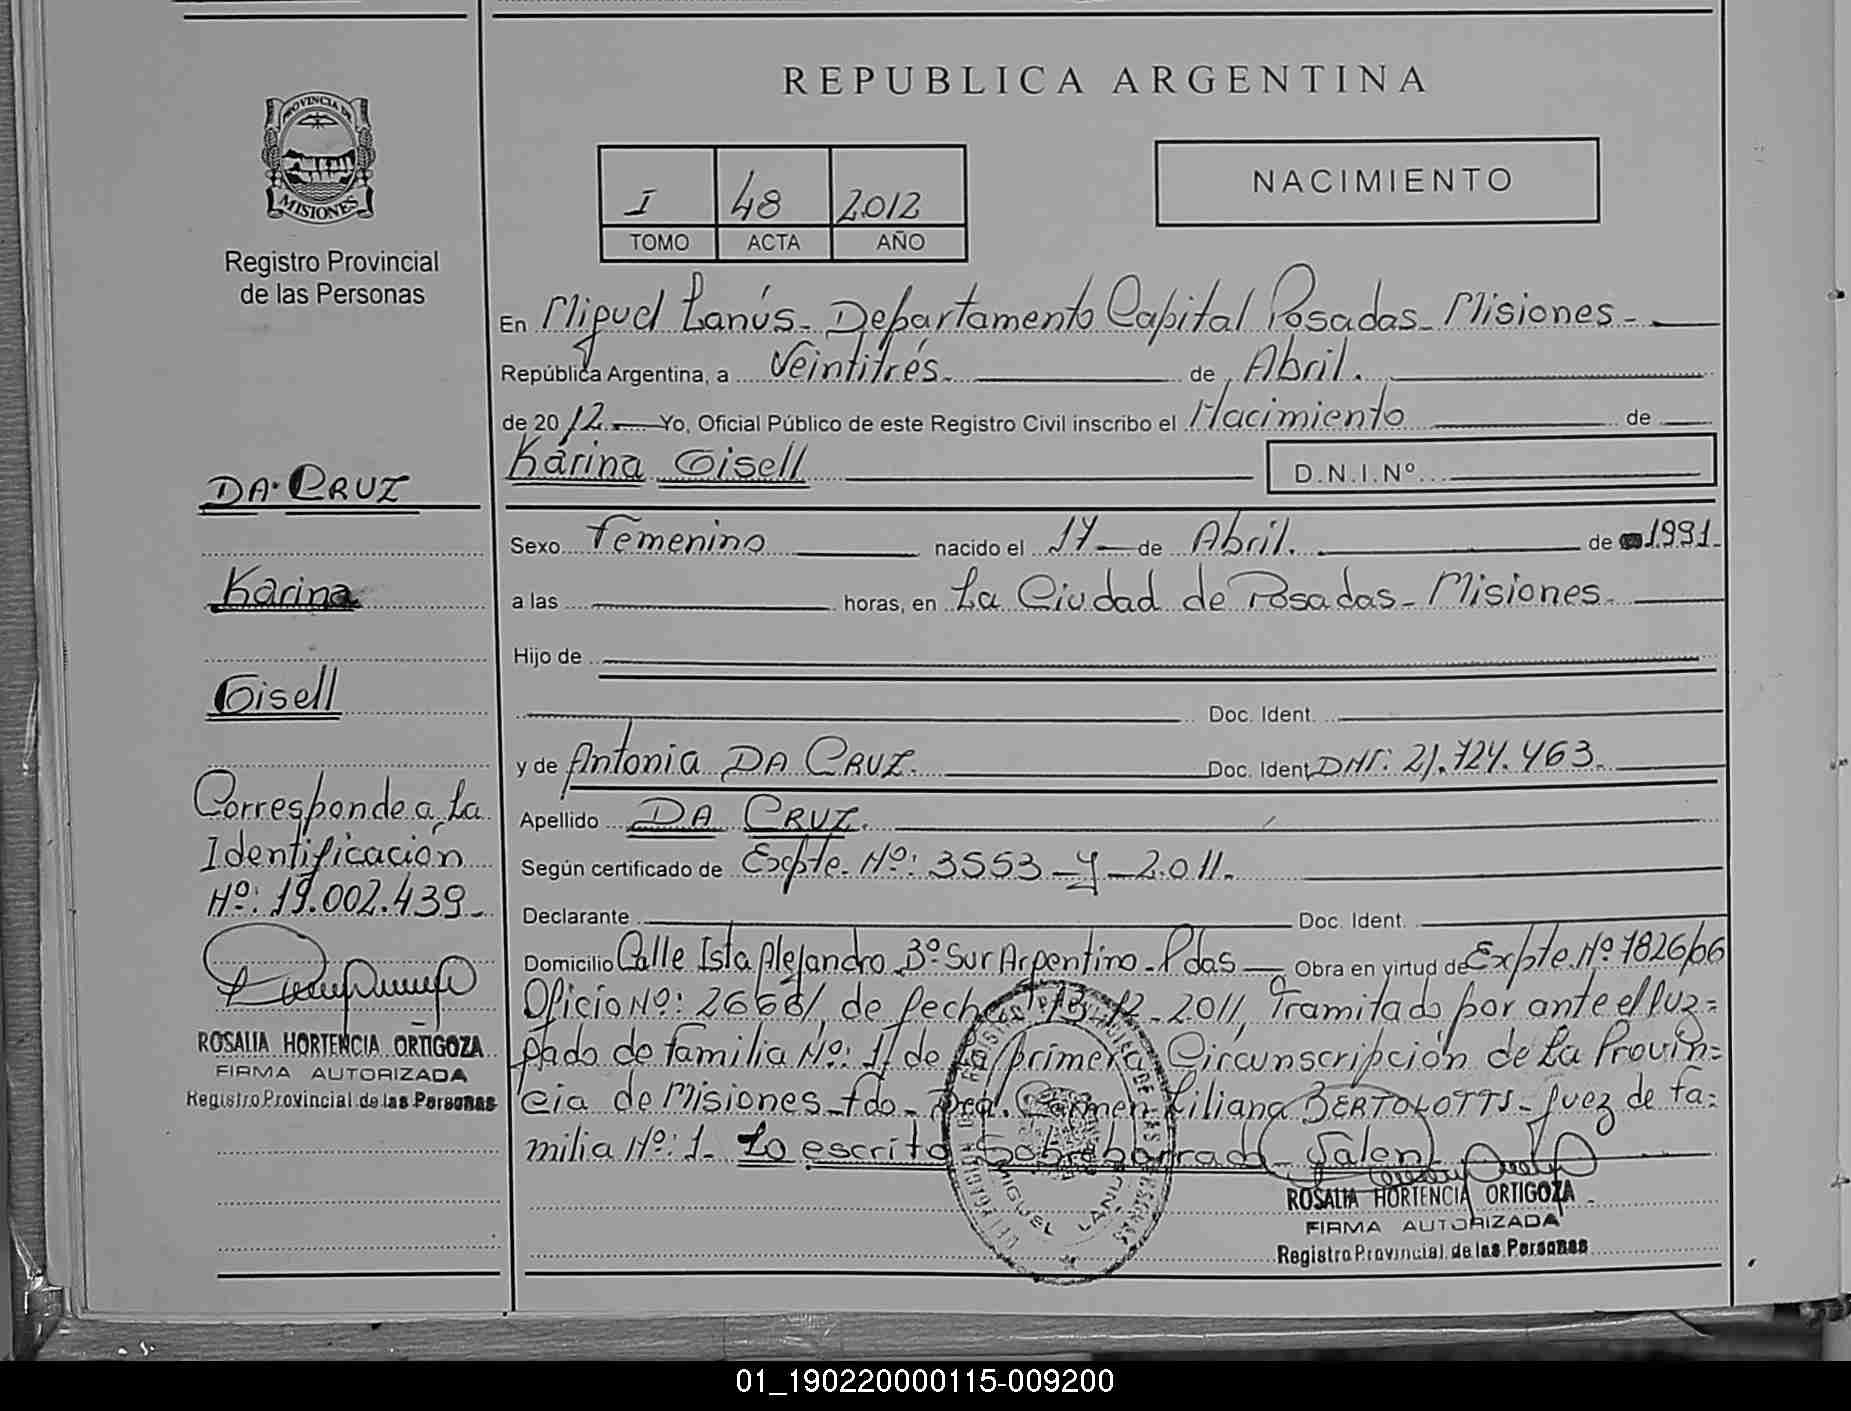 REPUBLICA ARGENTINA
PROVINCIA DE
MISIONES
Registro Provincial
de las Personas
I 48 2012
TOMO ACTA AÑO
NACIMIENTO
En Miguel Lanús - Departamento Capital Posadas - Misiones -
República Argentina, a Veintitrés de Abril.
de 2012 Yo, Oficial Público de este Registro Civil inscribo el Nacimiento de
Karina Gisell D.N.I.Nº
Sexo Femenino nacido el 17 de Abril. de 1991.
a las horas, en La Ciudad de Posadas - Misiones.
Hijo de
Doc. Ident.
y de Antonia DA CRUZ. Doc. Ident. DNI: 21.724.463.
Apellido DA CRUZ.
Según certificado de Expte. Nº: 3553 - Y - 2.011.
Declarante Doc. Ident.
Domicilio Calle Isla Alejandro Bº Sur Argentino - Pdas Obra en virtud de Expte Nº 1826/06
Oficio Nº: 2666/, de fecha 13-12-2011, Tramitado por ante el Juz=
gado de Familia Nº: 1, de La primera Circunscripción de La Provin=
cia de Misiones - fdo - Dra. Carmen Liliana BERTOLOTTI - Juez de Fa=
milia Nº: 1. Lo escrito Sobreborrado Valen
MIGUEL LANUS
ROSALIA HORTENCIA ORTIGOZA
FIRMA AUTORIZADA
Registro Provincial de las Personas
DA CRUZ
Karina
Gisell
Corresponde a La
Identificación
Nº: 19.002.439
ROSALIA HORTENCIA ORTIGOZA
FIRMA AUTORIZADA
Registro Provincial de las Personas
01_190220000115-009200